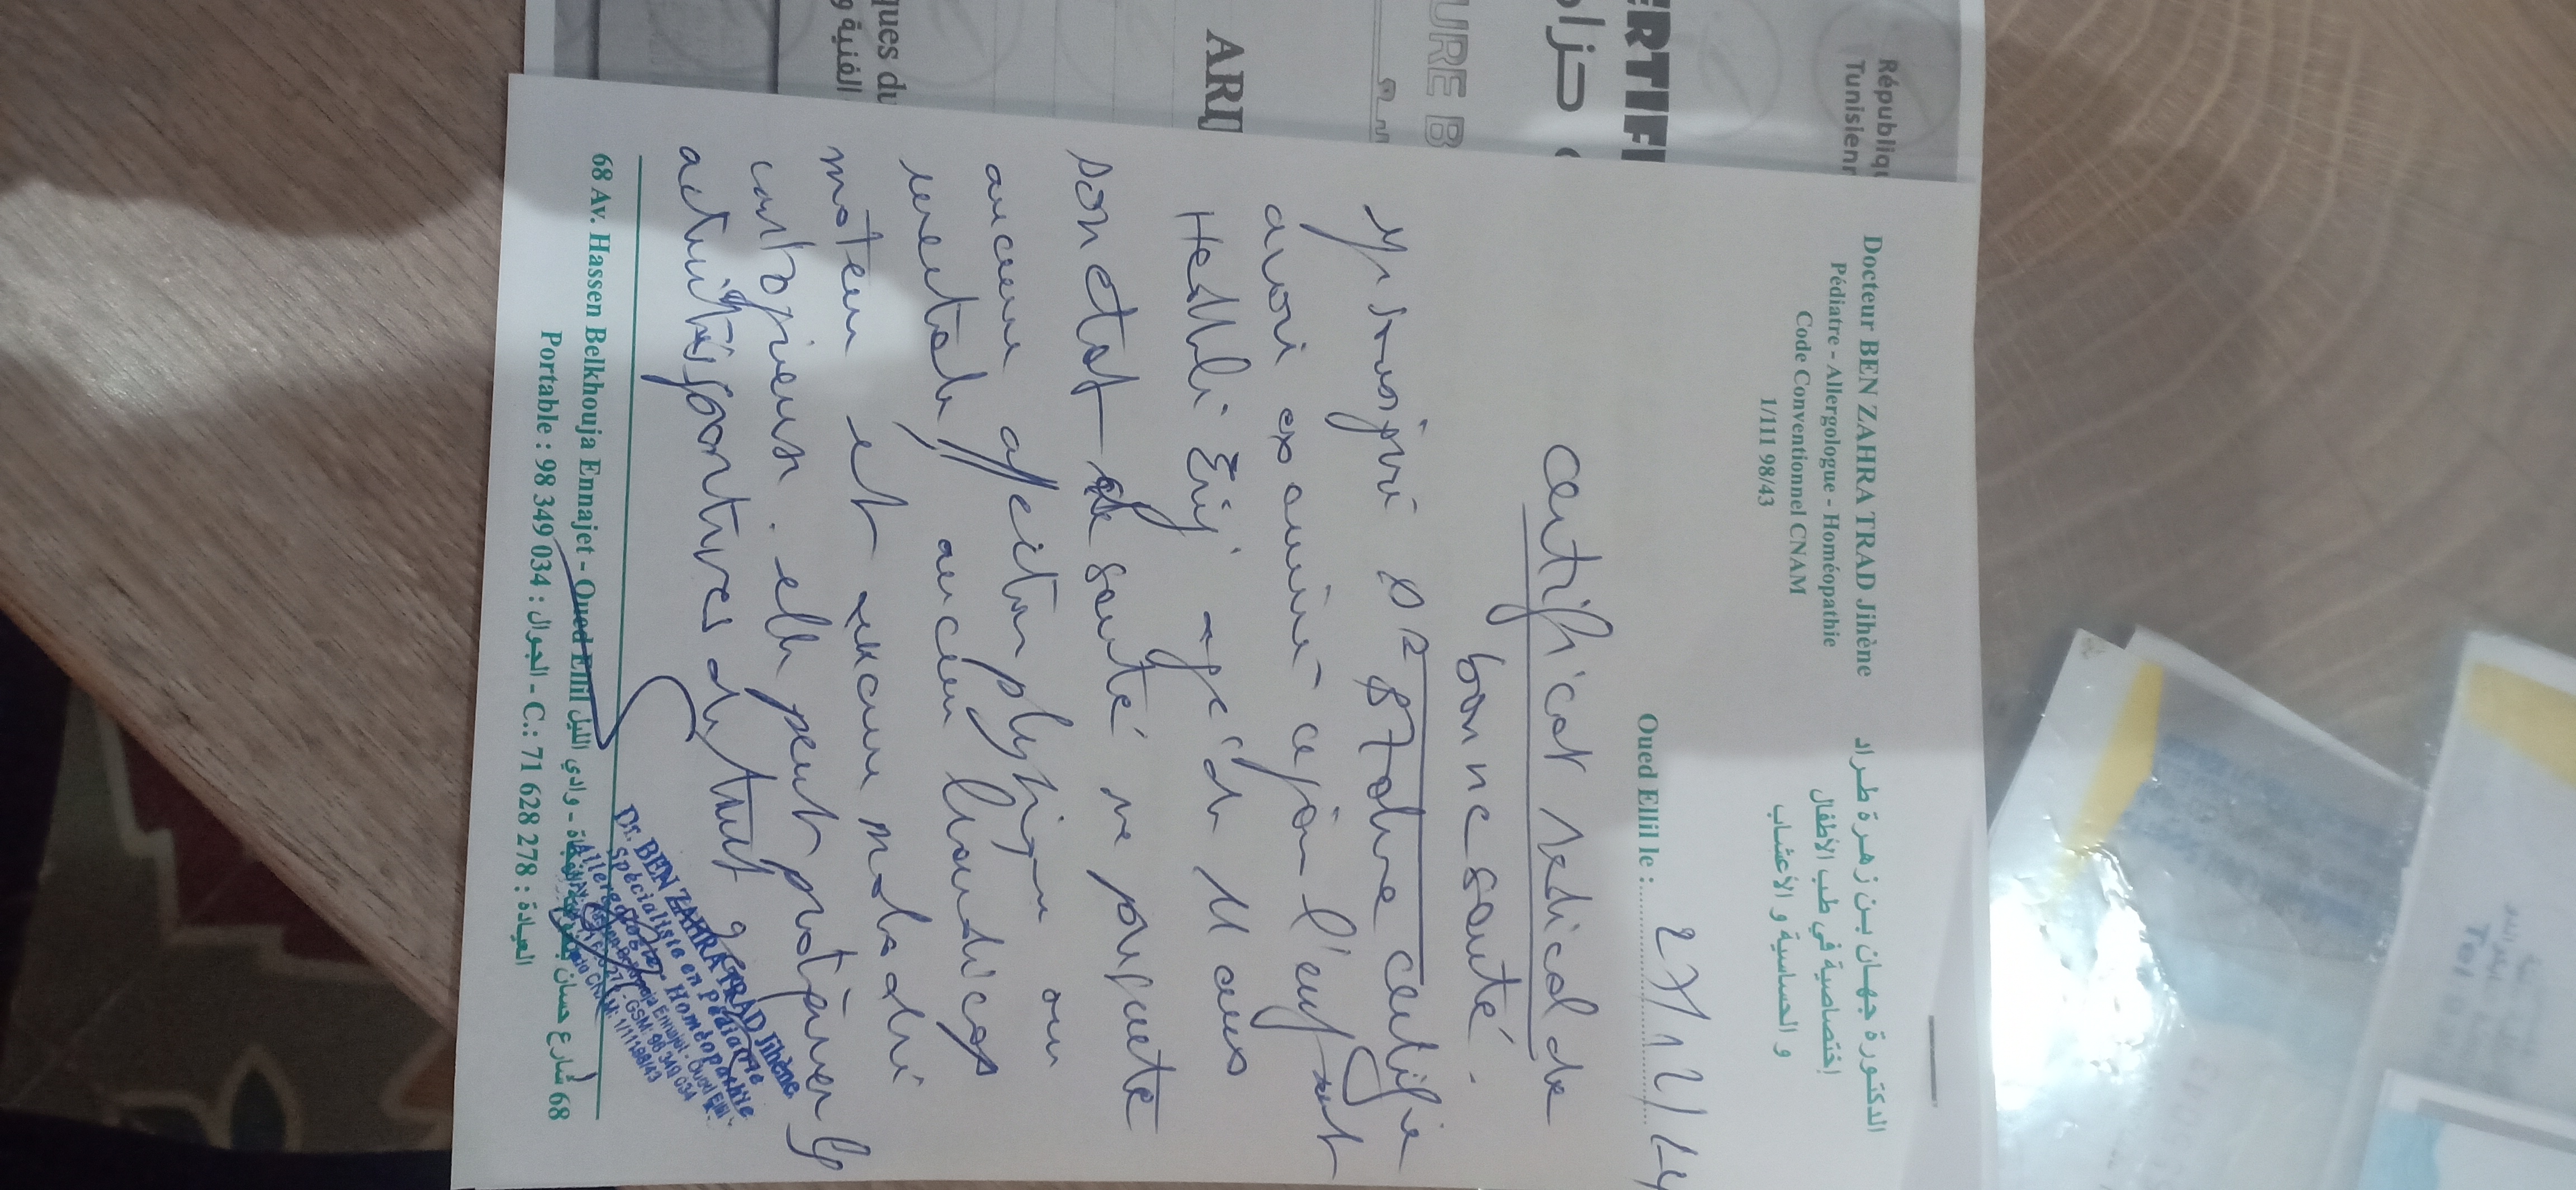 République
Tunisienn
ERTIFI
حزام
URE B
ARI
ques du
الفنية و
Docteur BEN ZAHRA TRAD Jihène
Pédiatre - Allergologue - Homéopathie
Code Conventionnel CNAM
1/111 98/43
الدكتورة جهان بن زهرة طراد
إختصاصية في طب الأطفال
و الحساسية و الأعشاب
Oued Ellil le : 27/12/24
Certificat Médical de
bonne santé.
Je soussigné Dr certifie
avoir examiné ce jour l'enfant
Eríj agée de 11 ans
son etat de santé ne présente
aucune affection physique ou
mentale, aucun handicap
moteur et aucune maladie
contagieuse. elle peut pratiquer les
activités sportives de tout genre
Dr. BEN ZAHRA TRAD Jihène
Spécialiste en Pédiatrie
Allergologie - Homéopathie
GSM: 98 349 034
CNAM: 1/11198/43
68 Av. Hassen Belkhouja Ennajet - Oued Ellil شارع حسان بلخوجة النجاة - وادي الليل 68
Portable : 98 349 034 : الجوال - C.: 71 628 278 : العيادة
Tel